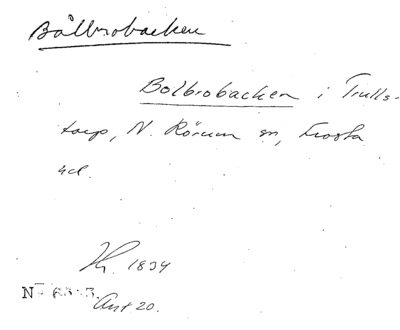 Bålbrobacken
Bolbrobacken i Trulls-
torp, N. Rörum sn, Frosta
hd.
1894
Ant 20.